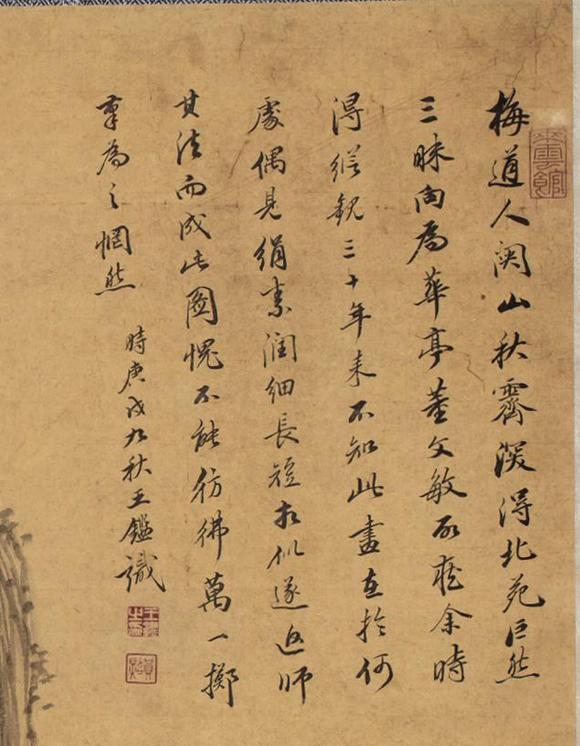 梅道人關山秋霽深得北苑巨然
三昧向為華亭董文敏所藏余時
得縱觀三十年来不知此畫在於何
處偶見絹素濶細長短相似遂追師
其法而成此圖愧不能彷彿萬一擲
筆為之惘然
時庚戌九秋王鑑識